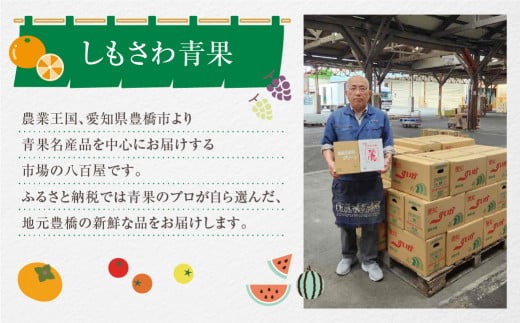 しもさわ青果
農業王国、愛知県豊橋市より
青果名産品を中心にお届けする
市場の八百屋です。
ふるさと納税では青果のプロが自ら選んだ、
地元豊橋の新鮮な品をお届けします。